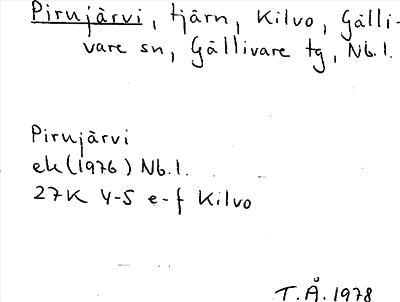 Pirujärvi, tjärn, Kilvo, Gälli-
vare sn, Gällivare tg, Nb.l.
Pirujärvi
ek(1976) Nb.l.
27K 4-5 e-f Kilvo
T.Å. 1978